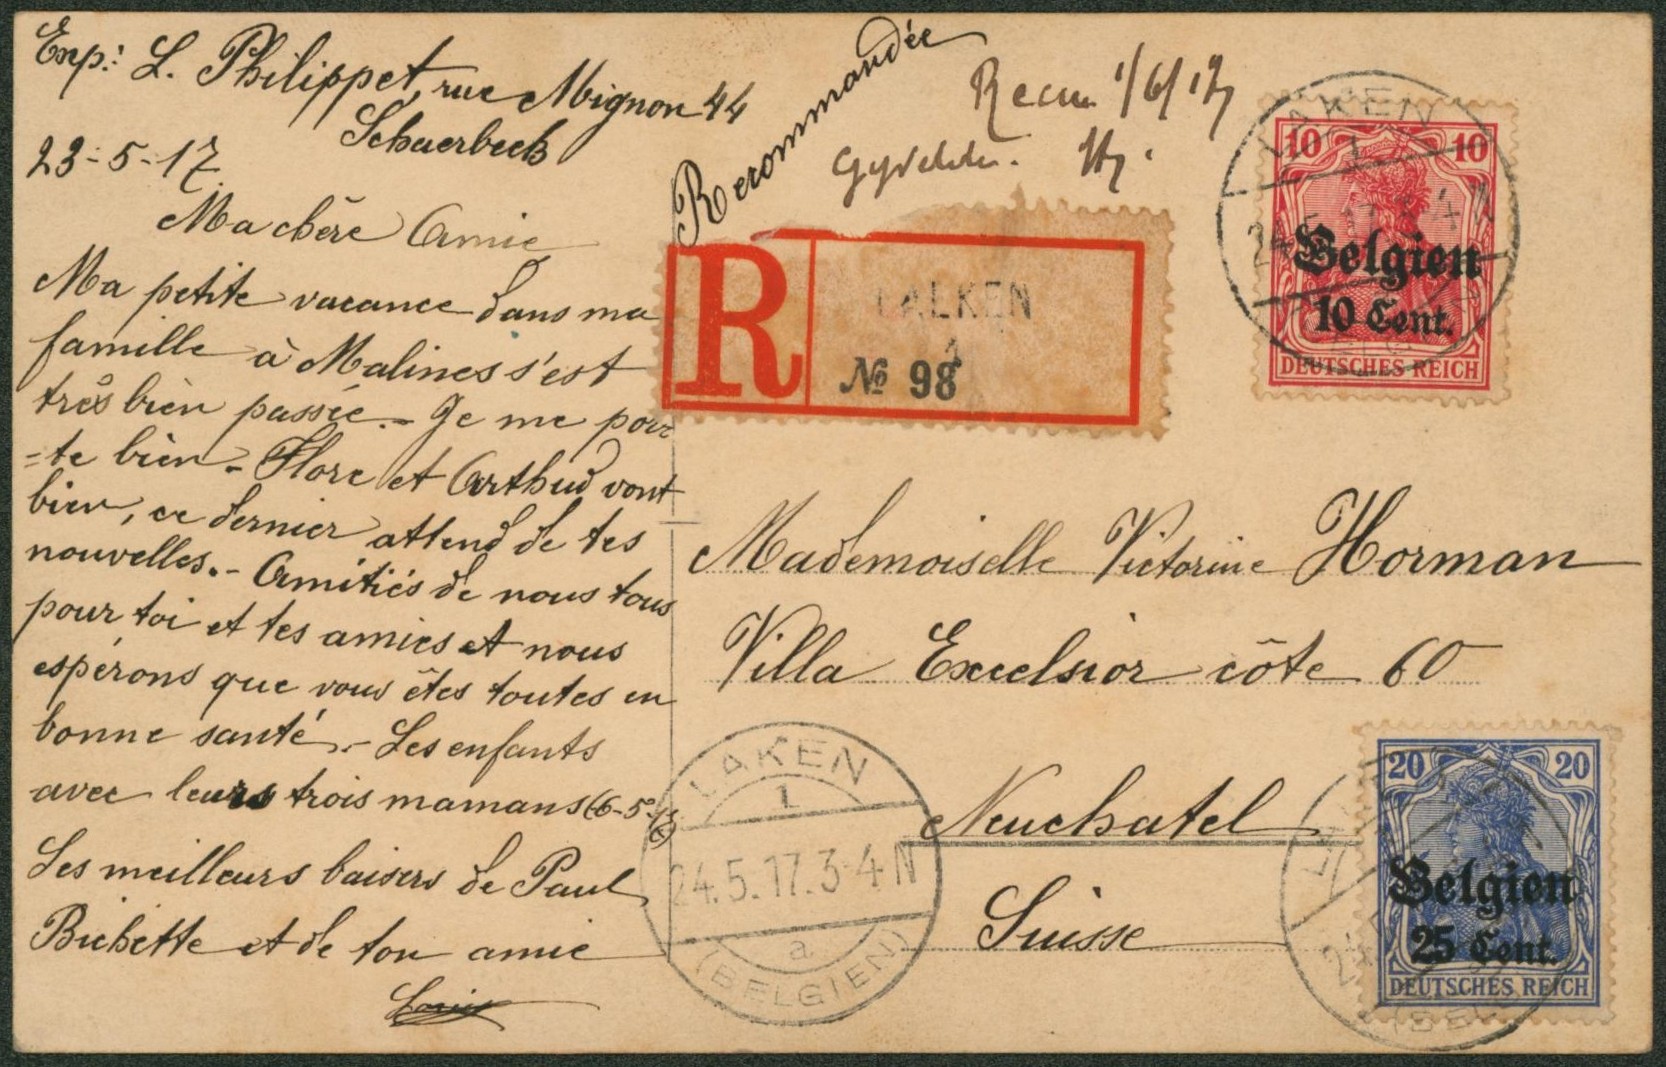 Exp: L. Philippet, rue Mignon 44
Schaerbeek
23-5-17.
Ma chère Amie
Ma petite vacance dans ma
famille à Malines s'est
très bien passée.- Je me por
=te bien - Flore et Arthur vont
bien, ce dernier attend de tes
nouvelles.- Amitiés de nous tous
pour toi et tes amies et nous
espérons que vous êtes toutes en
bonne santé.- Les enfants
avec leurs trois mamans (6-5-
Les meilleurs baisers de Paul
Bichette et de ton amie
Recommandée
1/6/17
R
LAEKEN
1
№ 98
LAKEN
1
24.5.17.3-4N
10 10
Belgien
10 Cent.
DEUTSCHES REICH
Mademoiselle Victorine Horman
Villa Excelsior côte 60
Neuchatel
Suisse
LAKEN
1
24.5.17.3-4N
a
(BELGIEN)
20 20
Belgien
25 Cent.
DEUTSCHES REICH